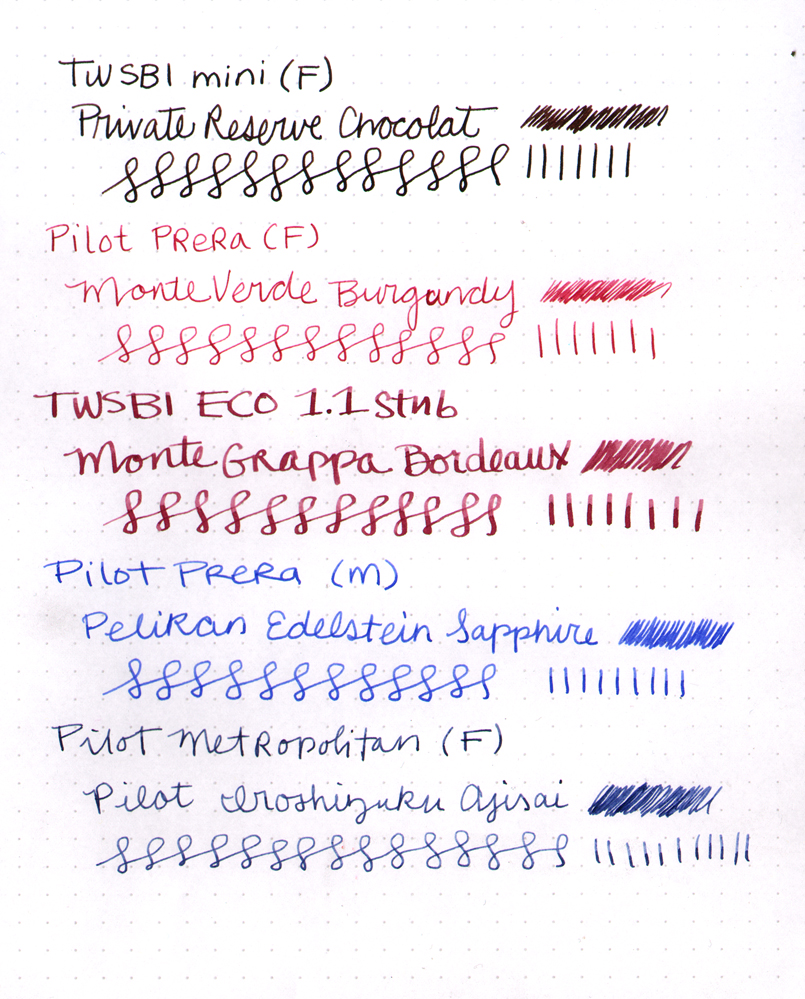 TWSBI mini (F)
Private Reserve Chocolat
Pilot Prera (F)
Monte Verde Burgandy
TWSBI ECO 1.1 Stub
Monte Grappa Bordeaux
Pilot Prera (M)
Pelikan Edelstein Sapphire
Pilot Metropolitan (F)
Pilot Iroshizuku Ajisai